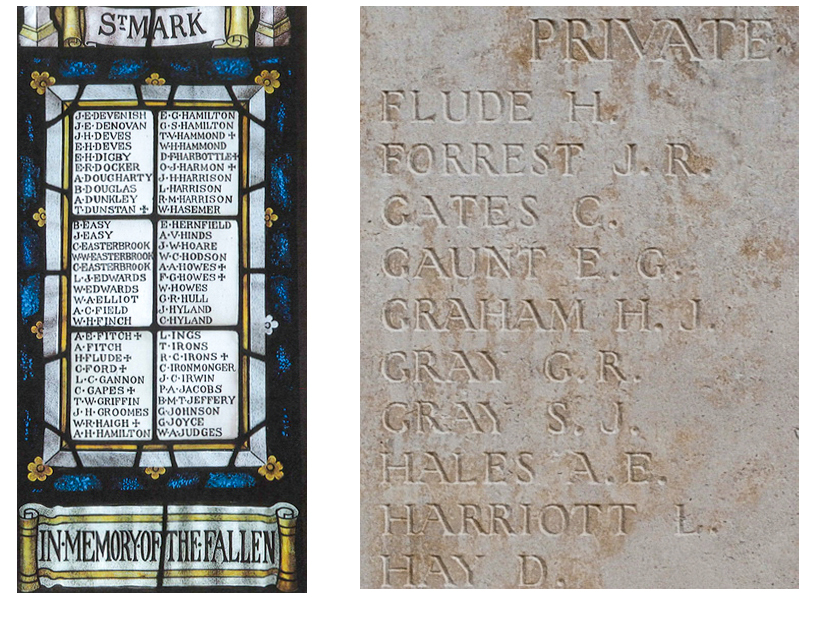 ST MARK
J·E·DEVENISH
J·E·DENOVAN
J·H·DEVES
E·H·DEVES
E·H·DIGBY
E·R·DOCKER
A·DOUGHARTY
B·DOUGLAS
A·DUNKLEY
T·DUNSTAN ✝
E·G·HAMILTON
G·S·HAMILTON
T·V·HAMMOND ✝
W·H·HAMMOND
D·F·HARBOTTLE ✝
O·J·HARMON ✝
J·H·HARRISON
L·HARRISON
R·M·HARRISON
W·HASEMER
B·EASY
J·EASY
C·EASTERBROOK
W·W·EASTERBROOK
C·EASTERBROOK
L·J·EDWARDS
W·EDWARDS
W·A·ELLIOT
A·C·FIELD
W·H·FINCH
E·HERNFIELD
A·V·HINDS
J·W·HOARE
W·C·HODSON
A·A·HOWES ✝
F·G·HOWES ✝
W·HOWES
G·R·HULL
J·HYLAND
C·HYLAND
A·E·FITCH ✝
A·FITCH
H·FLUDE ✝
C·FORD ✝
L·C·GANNON
C·GAPES ✝
T·W·GRIFFIN
J·H·GROOMES
W·R·HAIGH ✝
A·H·HAMILTON
L·INGS
T·IRONS
R·C·IRONS ✝
C·IRONMONGER
J·C·IRWIN
P·A·JACOBS
B·M·T·JEFFERY
G·JOHNSON
G·JOYCE
W·A·JUDGES
IN·MEMORY·OF·THE·FALLEN
PRIVATE
FLUDE H.
FORREST J. R.
GATES C.
GAUNT E. G.
GRAHAM H. J.
GRAY G. R.
GRAY S. J.
HALES A. E.
HARRIOTT L.
HAY D.